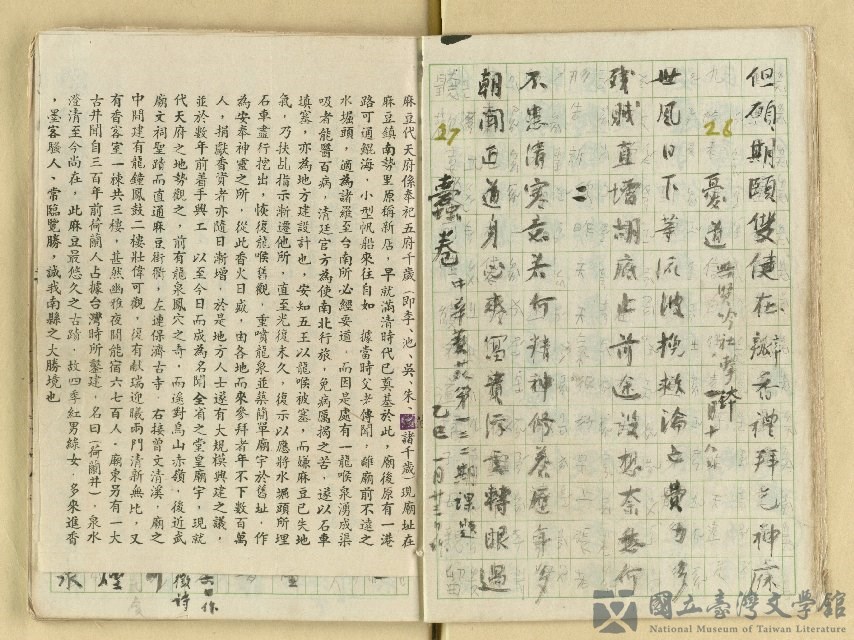 但願期頤雙健在瓣香禮拜乞神庥
26 憂道 興賢吟社擊鉢 一月十八日
世風日下等流波挽救論亡費力多
殘賊直墻胡底止前途設想奈愁何
二
不患清寒意若何精神修養歷年多
朝聞正道身寧爽富貴浮雲轉眼過
27 蠹卷 中華藝苑第一二二期課題
乙巳一月廿三日
麻豆代天府係奉祀五府千歲(即李、池、吳、朱、范諸千歲)現廟址在
麻豆鎮南勢里原稱新店,早就滿清時代已奠基於此,廟後原有一港
路可通鯤海,小型帆船來往自如 據當時父老傳聞,離廟前不遠之
水堀頭,適為諸羅至台南所必經要道,而因是處有一龍喉泉湧成渠
吸者能醫百病,清廷官方為使南北行旅,免病厲揭之苦,遂以石車
填塞,亦為地方建設計也,安知五王以龍喉被塞,而嫌麻豆已失地
氣,乃扶乩指示漸遷他所,直至光復未久,復示以應將水堀頭所埋
石車盡行挖出,恢復龍喉舊觀,重噴龍泉並蔡簡單廟宇於舊址,作
為安奉神靈之所,從此香火日盛,由各地而來參拜者年不下數百萬
人,捐獻香資者亦隨日漸增,於是地方人士遂有大規模興建之議,
並於數年前着手興工 以至今日而成為名聞全省之堂皇廟宇,現就
代天府之地勢觀之,前有龍泉鳳穴之奇,而遙對烏山赤嶺,後近武
廟文祠聖蹟而直通麻豆街衢,左連保濟古寺 右接曾文清溪,廟之
中間建有龍鐘鳳鼓二樓壯偉可觀,復有獻瑞迎曦兩門清新無比,又
有香客室一棟共三樓,甚然幽雅夜間能宿六七百人。廟東另有一大
古井聞自三百年前荷蘭人占據台灣時所鑿建,名曰(荷蘭井),泉水
澄清至今尚在,此麻豆最悠久之古蹟,故四季紅男綠女,多來進香
,墨客騷人、常臨覽勝,誠我南縣之大勝境也
六日作
徵詩
國立臺灣文學館
National Museum of Taiwan Literature